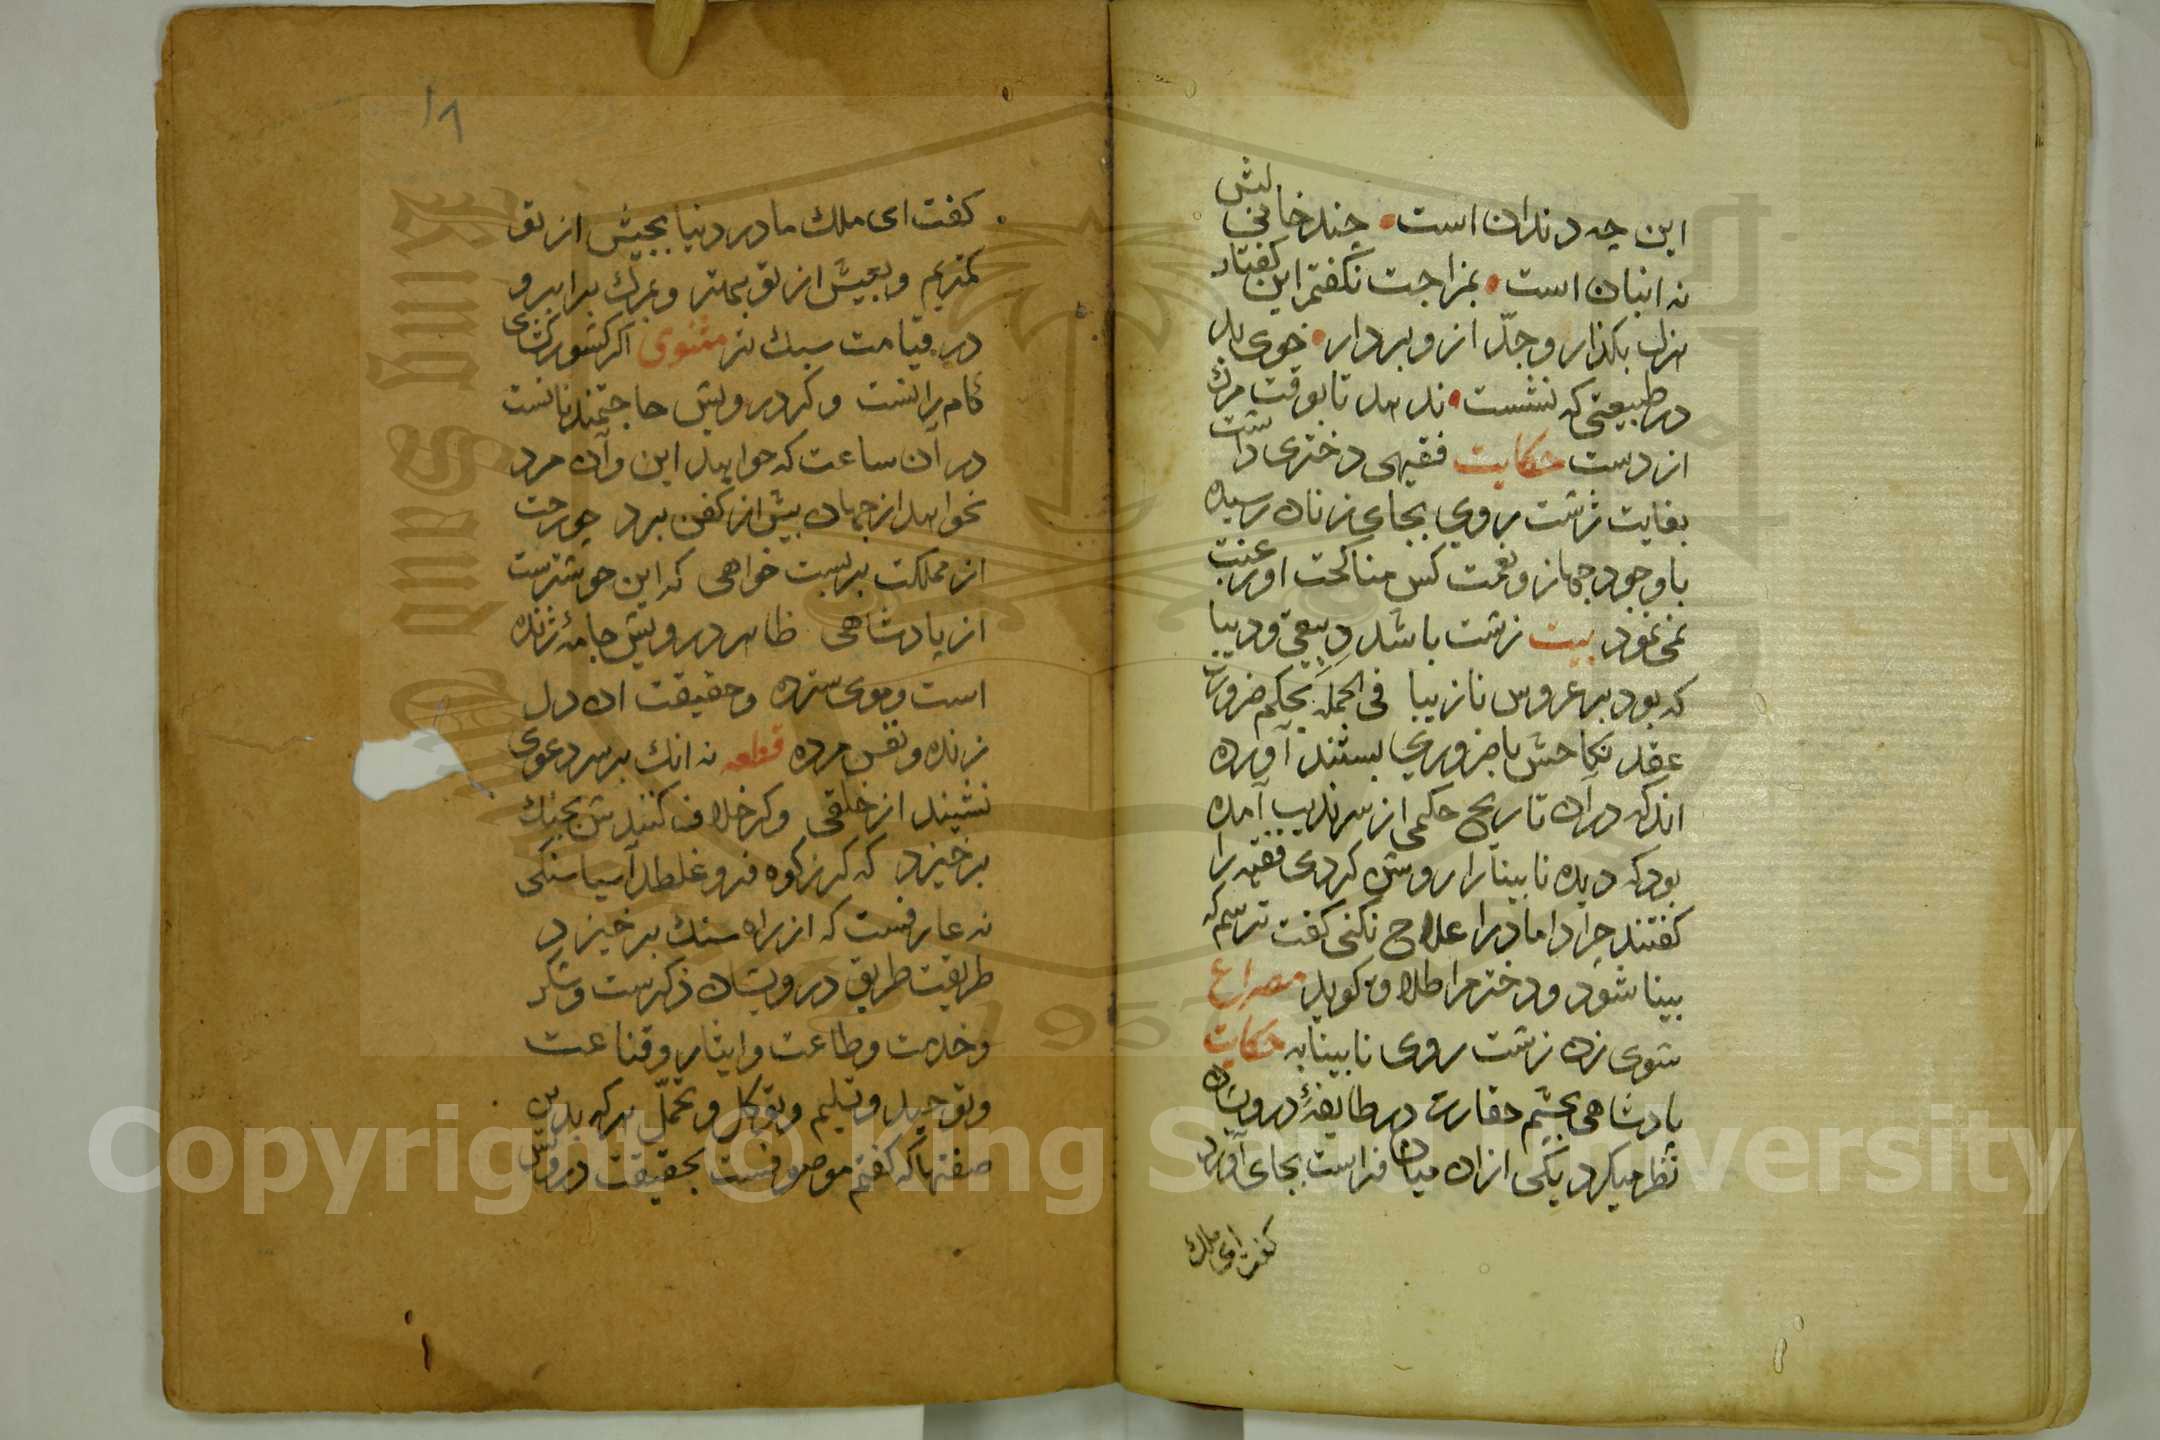 این چه دندان است چند خائی لبش
نه انبان است بمزاحت نکفتم این کفتار
هزل بکذار و جدّ از و بردار خوی بد
در طبیعتی که نشست ندهد تا بوقت مرک
از دست حکایت فقیهی دختری داشت
بغایت زشت روی بجای زنان رسیده
با وجود جهاز و نعمت کس مناکحت او رغبت
نمی نمود بیت زشت باشد دبیقی و دیبا
که بود بر عروس نازیبا فی الجمله بحکم ضرورت
عقد نکاحش با ضریری بستند آورده
اند که در ان تاریخ حکیمی از سرندیب آمده
بود که دیده نابینا را روشن کردی فقیه را
کفتند چرا داماد را علاج نکنی کفت ترسم که
بینا شود و دخترم را طلاق کوید مصراع
شوی زن زشت روی نابینا به حکایت
پادشاهی بچشم حقارت در طایفهٔ درویشان
نظر میکرد یکی از ان میان بفراست بجای آورد
کفت ای ملک
۱۸
کفت ای ملک ما در دنیا بجیش از تو
کمتریم و بعیش از تو بهتر و بمرک برابر و
در قیامت سبک تر مثنوی اکر کشور کشای
کام رانست وکر درویش حاجتمند نانست
در آن ساعت که خواهند این و آن مرد
نخواهند از جهان بیش از کفن برد چو رخت
از مملکت بربست خواهی که این خوشترست
از پادشاهی ظاهر درویش جامهٔ ژنده
است و موی سترده و حقیقت ان دل
زنده و نفس مرده قطعه نه انک بر سر دعوی
نشیند از خلقی وکر خلاف کنندش بجنک
برخیزد که کر ز کوه فرو غلطد آسیا سنکی
نه عارفست که از راه سنک برخیزد
طریقت طریق درویشان ذکرست و شکر
و خدمت و طاعت و ایثار و قناعت
و توحید و تسلیم و توکل و تحمّل هر که بدین
صفتها که کفتم موصوفست بحقیقت درویش
Copyright © King Saud University
King Saud University
1957